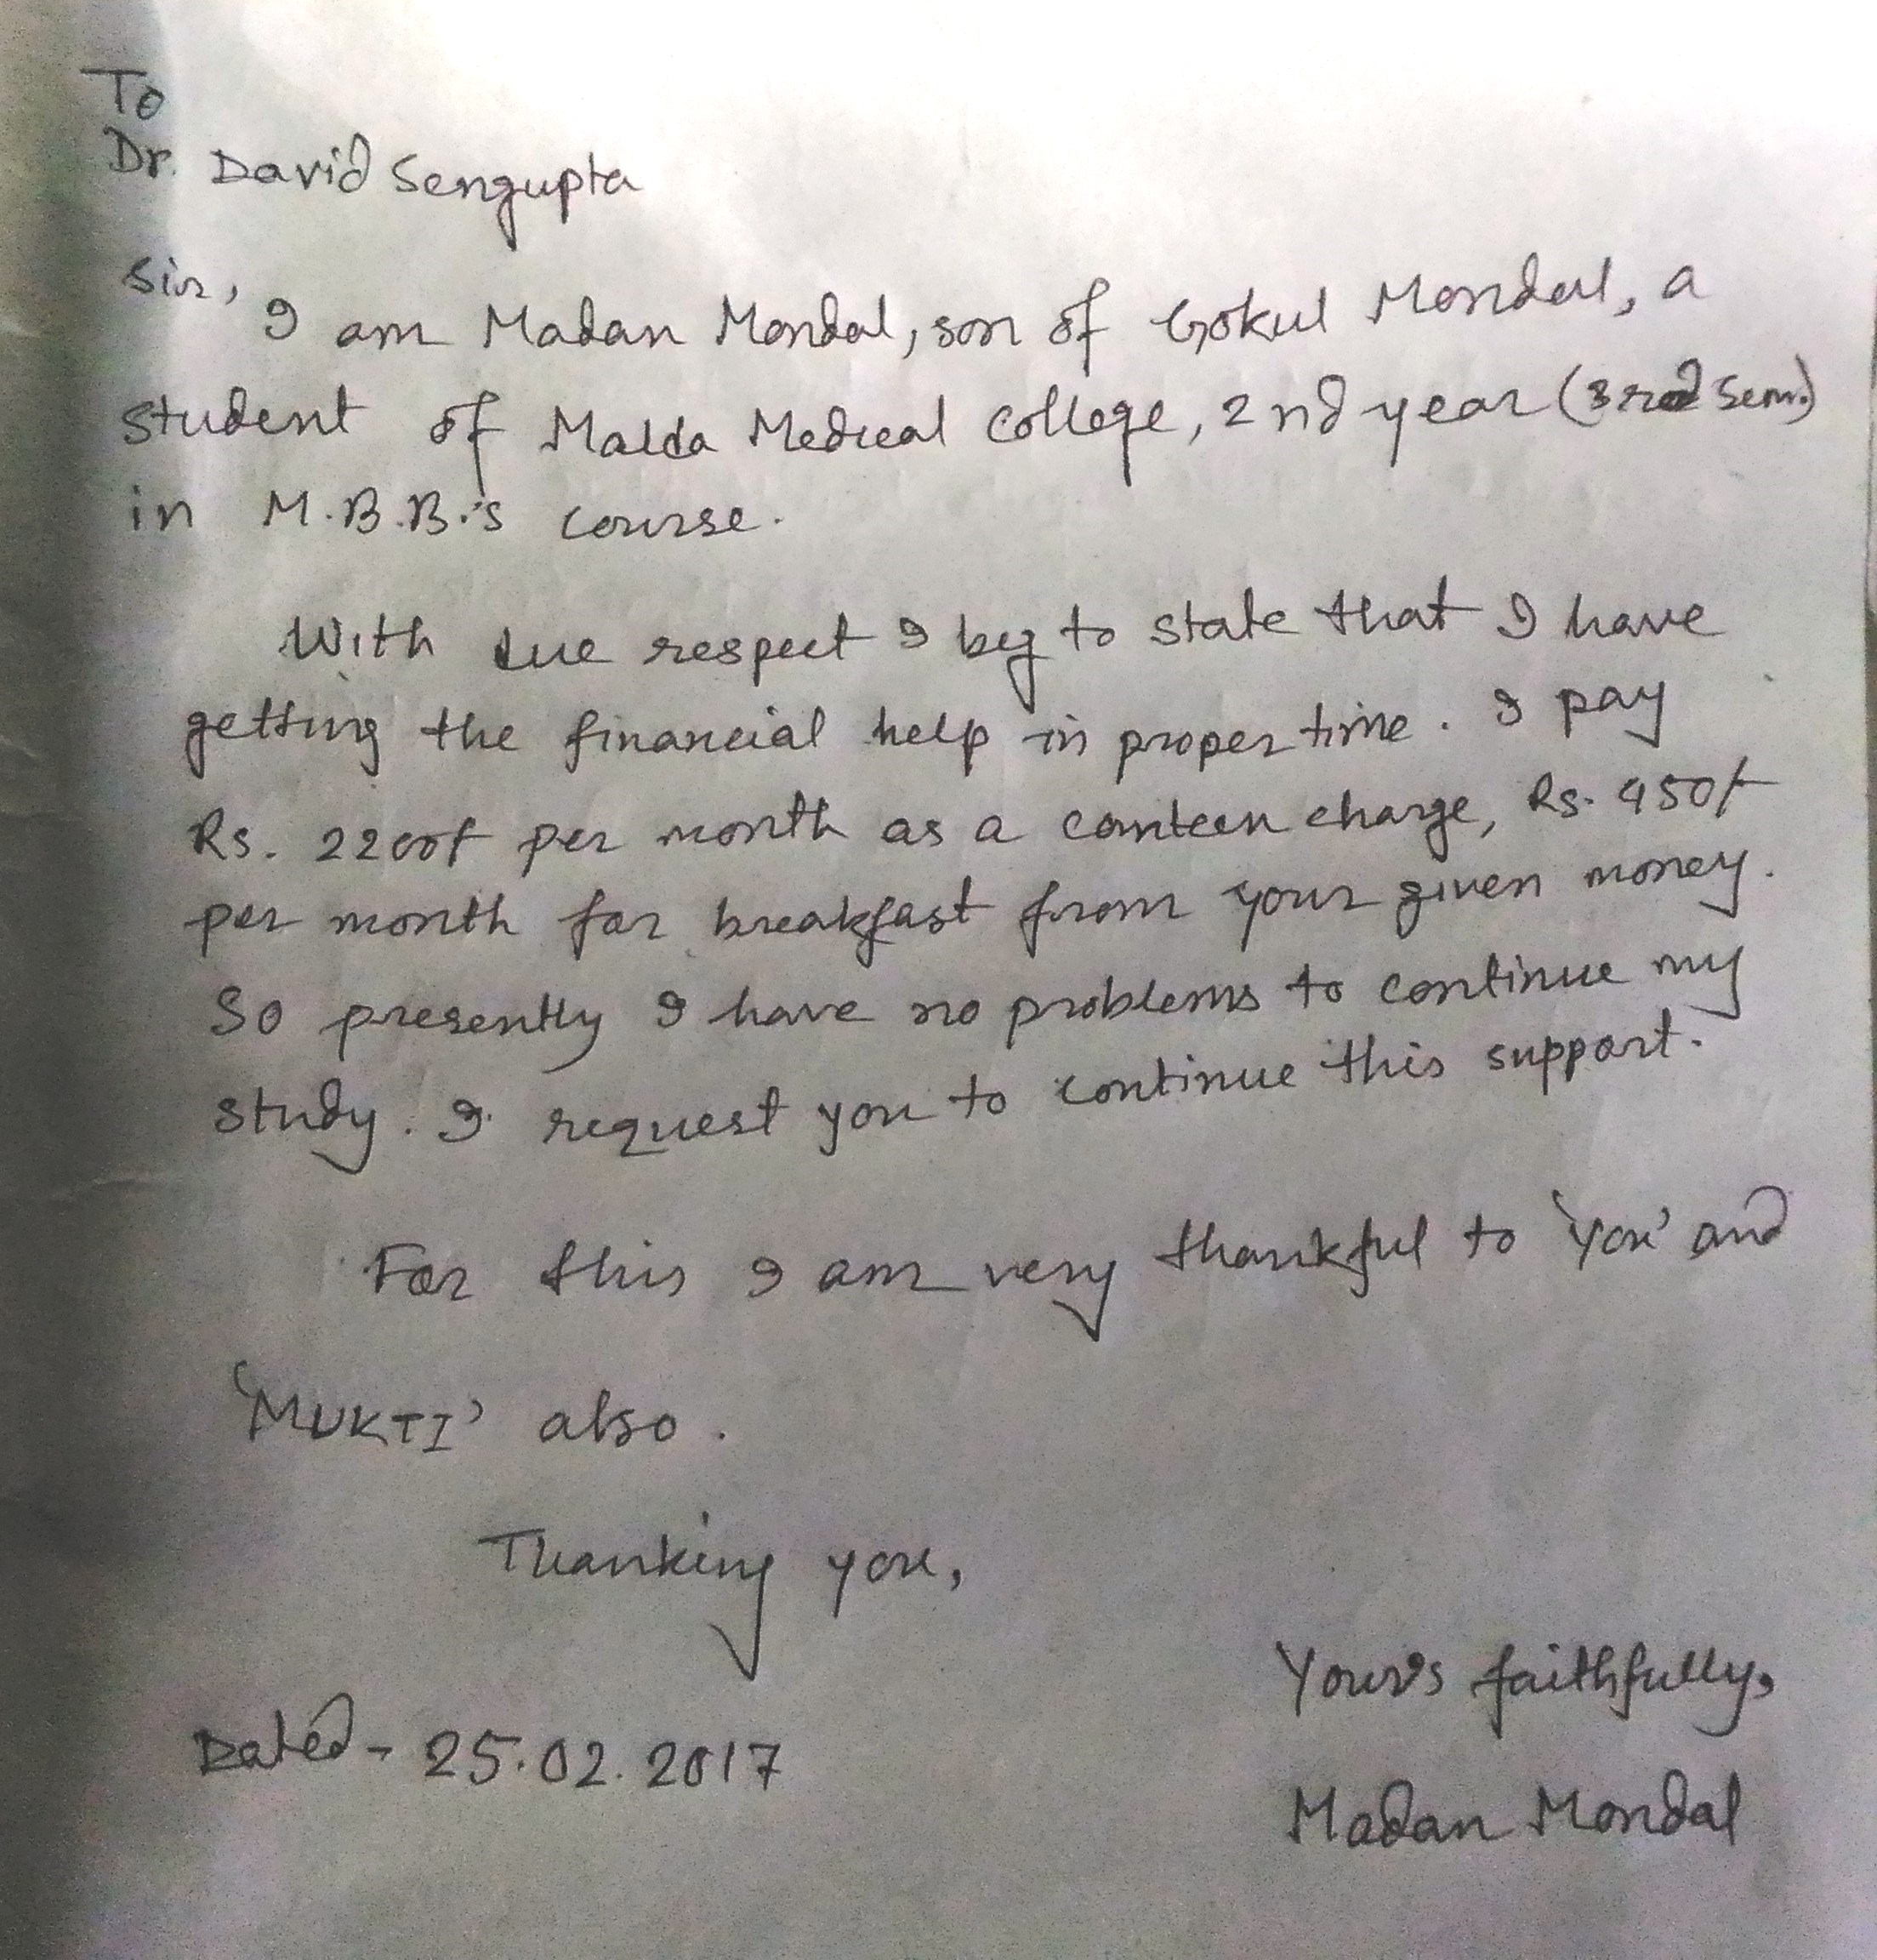 To
Dr. David Sengupta
Sir,
I am Madan Mondal, son of Gokul Mondal, a
student of Malda Medical College, 2nd year (3rd Sem.)
in M.B.B.S course.
With due respect I beg to state that I have
getting the financial help in proper time. I pay
Rs. 2200/- per month as a canteen charge, Rs. 450/-
per month for breakfast from your given money.
So presently I have no problems to continue my
study. I request you to continue this support.
For this I am very thankful to 'You' and
'MUKTI' also.
Thanking you,
Your's faithfully,
Dated - 25.02.2017
Madan Mondal